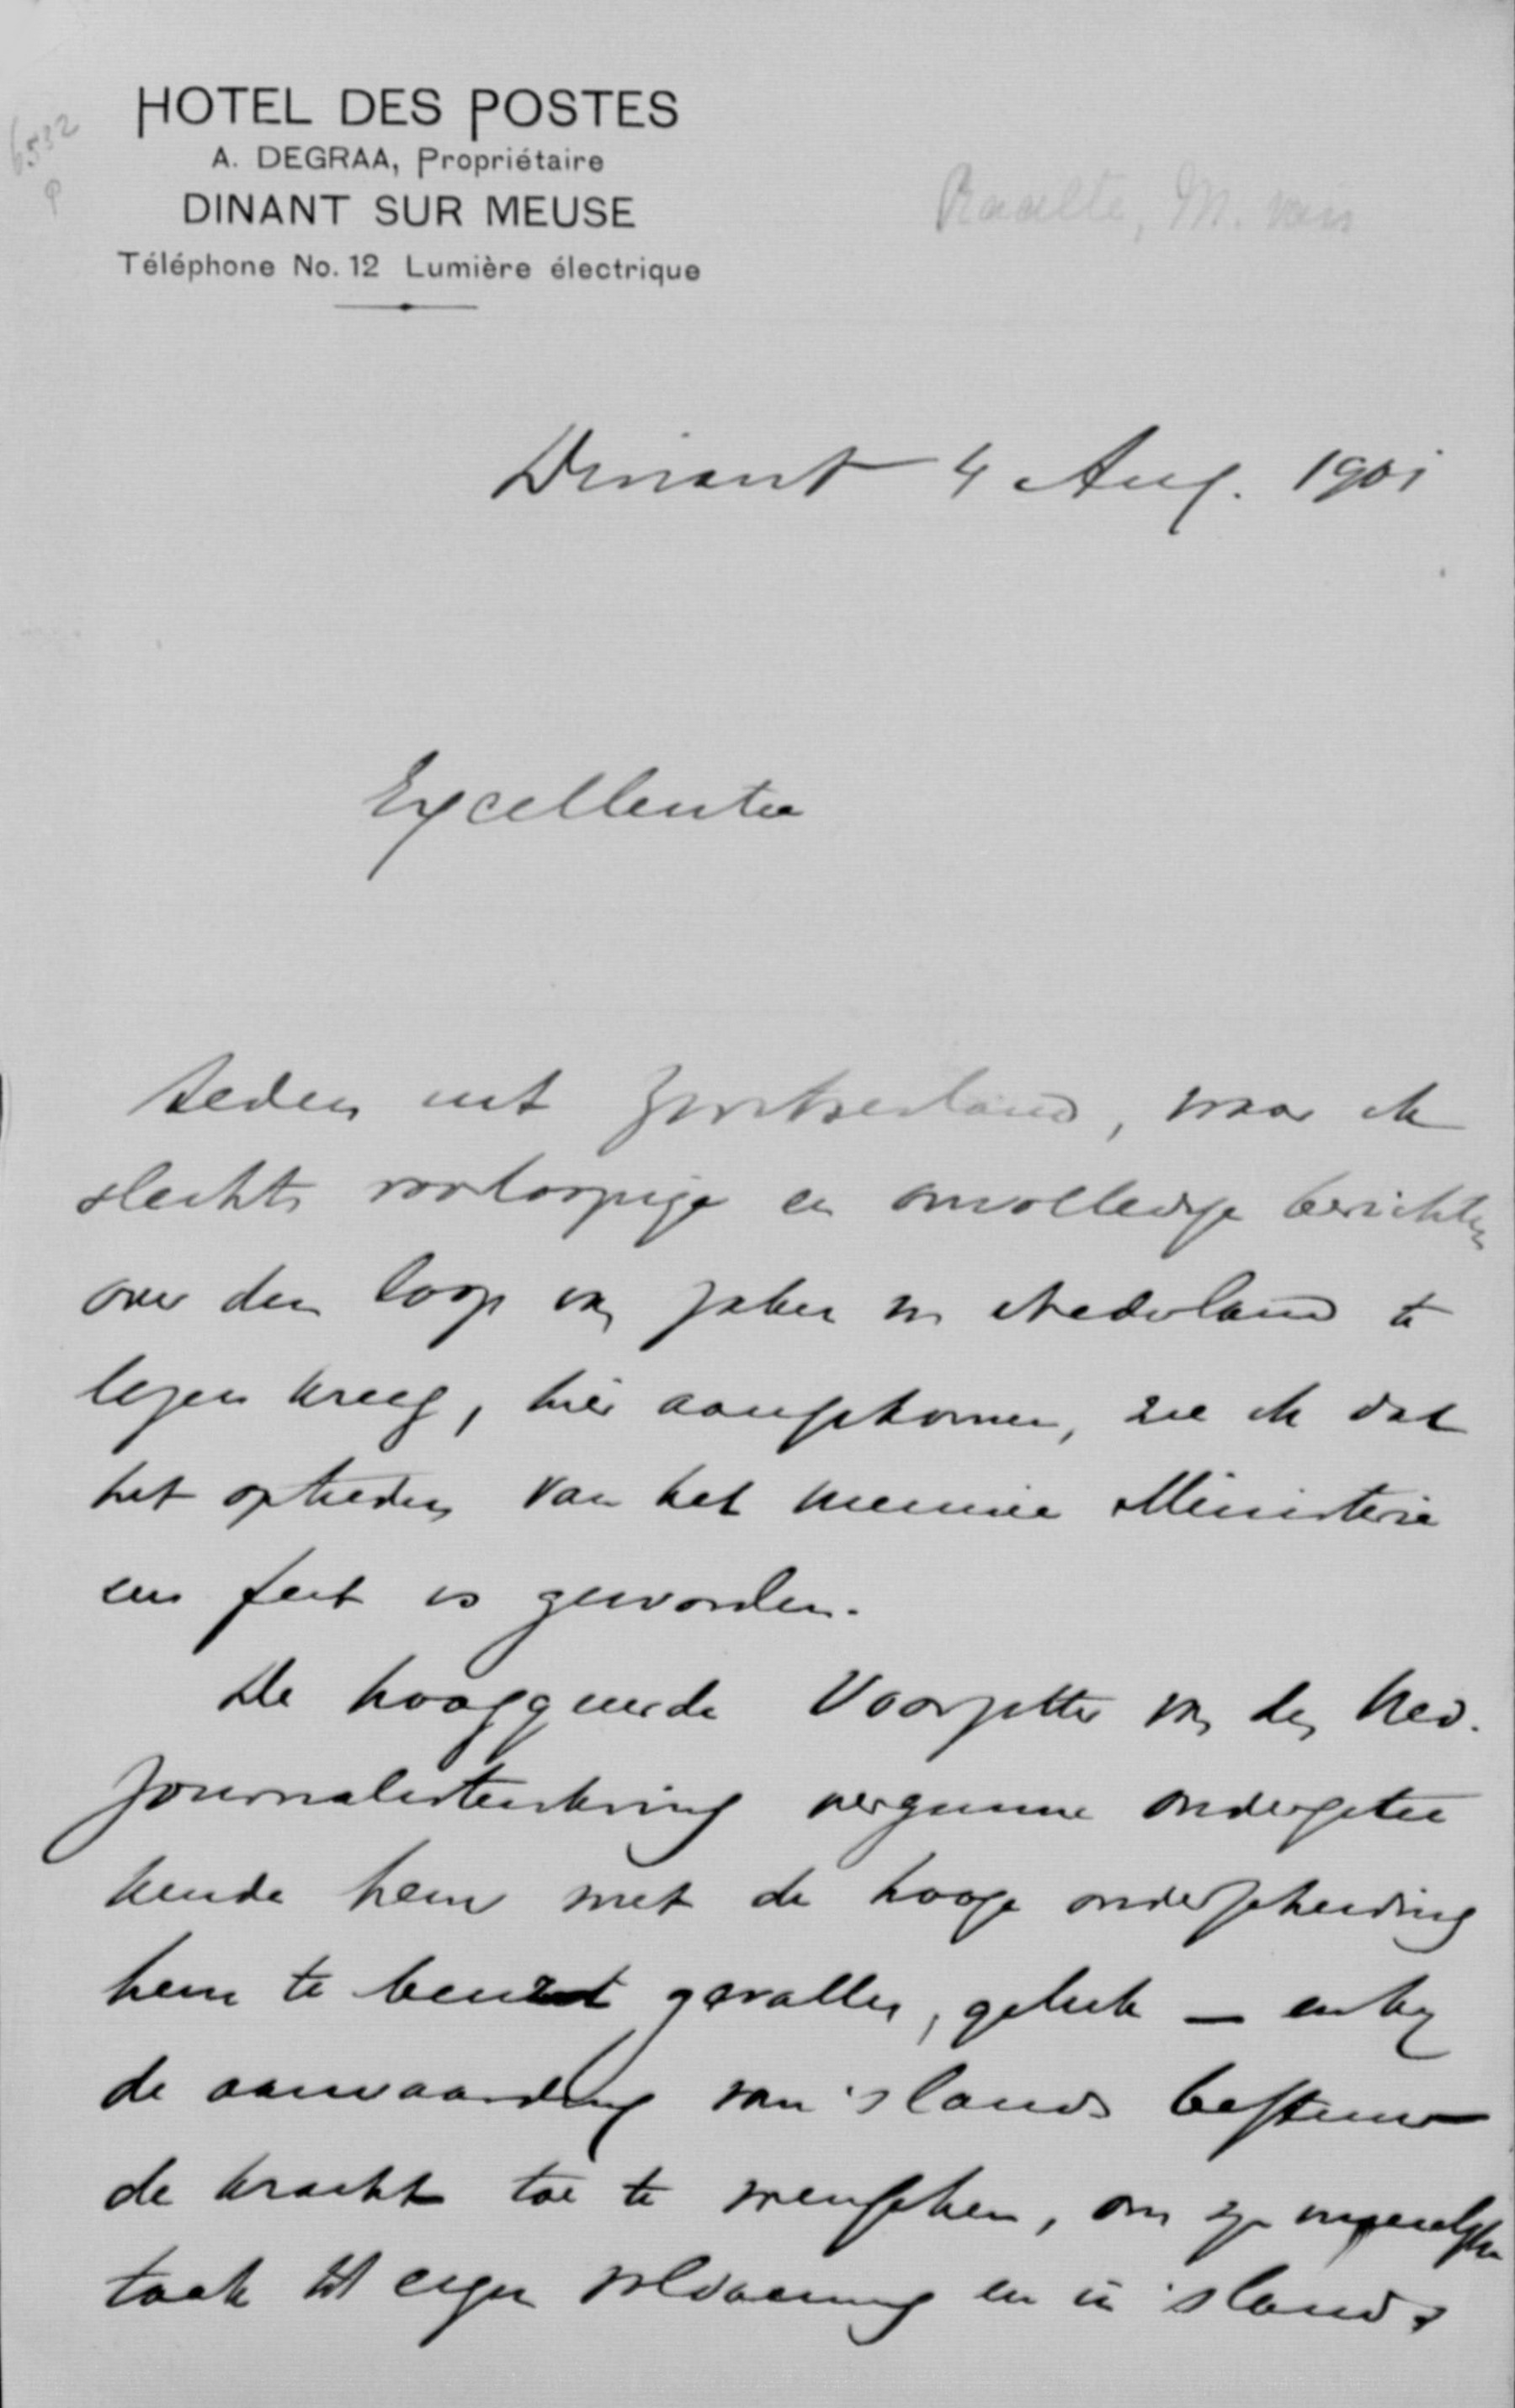 HOTEL DES POSTES
A. DEGRAA, Propriétaire
DINANT SUR MEUSE
Téléphone No. 12 Lumière électrique
6532
Raalte, M. van
Dinant 4 Aug. 1901
Excellentie
Heden uit Zwitserland, waar ik
slechts voorloopige en onvolledige berichten
over den loop van zaken in Nederland te
lezen kreeg, hier aangekomen, zie ik dat
het optreden van het nieuwe Ministerie
een feit is geworden.
De hooggeëerde Voorzitter van den Ned.
Journalistenkring vergunne ondergetee
kende hem met de hooge onderscheiding
hem te beurt gevallen, geluk — en bij
de aanvaarding van 's lands bestuur
de kracht toe te wenschen, om zijn moeielijke
taak tot eigen voldoening en in 's lands